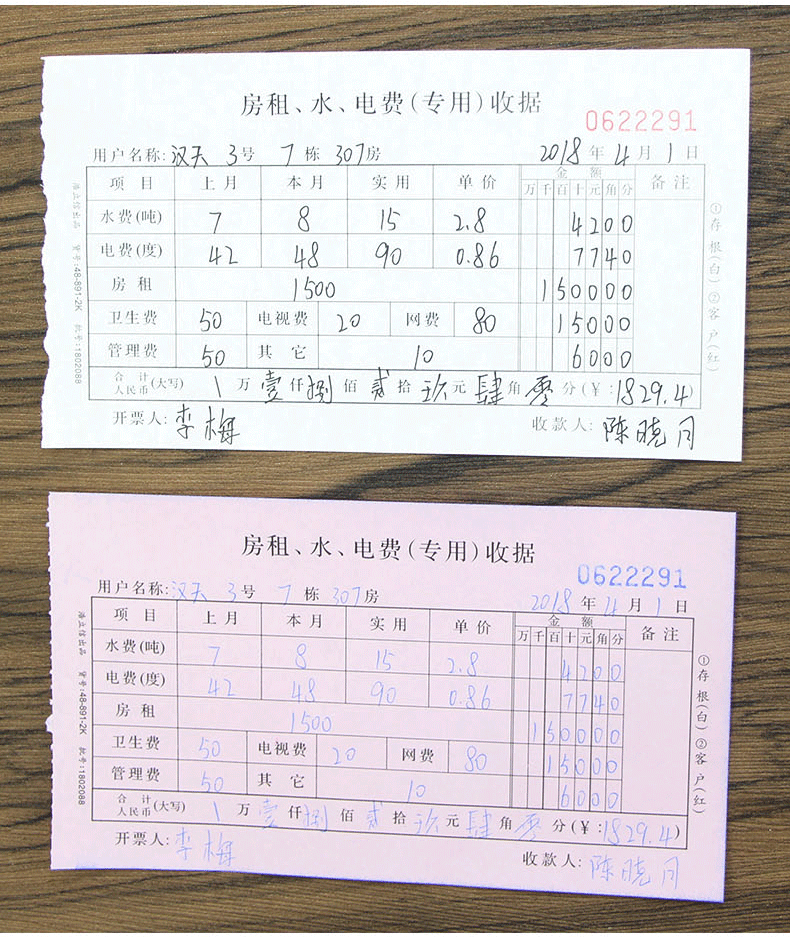 房租、水、电费(专用)收据
0622291
用户名称: 汉天 3号 7栋 307房 2018年4月1日
项目 上月 本月 实用 单价 金额 备注
万千百十元角分
水费(吨) 7 8 15 2.8 4200
电费(度) 42 48 90 0.86 7740
房租 1500 150000
卫生费 50 电视费 20 网费 80 15000
管理费 50 其它 10 6000
合计人民币(大写) 万 壹仟 捌佰 贰拾 玖元 肆角 零分(¥:1829.4)
开票人: 李梅 收款人: 陈晓月
①存根(白) ②客户(红)
浩立信出品 货号:48-891-2K 批号:1802088
房租、水、电费(专用)收据
0622291
用户名称: 汉天 3号 7栋 307房 2018年4月1日
项目 上月 本月 实用 单价 金额 备注
万千百十元角分
水费(吨) 7 8 15 2.8 4200
电费(度) 42 48 90 0.86 7740
房租 1500 150000
卫生费 50 电视费 20 网费 80 15000
管理费 50 其它 10 6000
合计人民币(大写) 万 壹仟 捌佰 贰拾 玖元 肆角 零分(¥:1829.4)
开票人: 李梅 收款人: 陈晓月
①存根(白) ②客户(红)
浩立信出品 货号:48-891-2K 批号:1802088